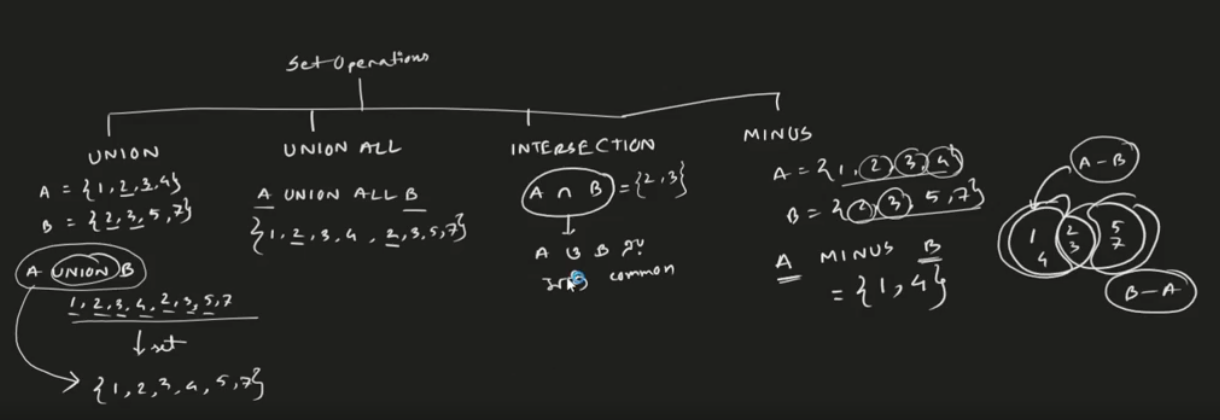 Set Operations
UNION
A = {1, 2, 3, 4}
B = {2, 3, 5, 7}
A UNION B
1, 2, 3, 4, 2, 3, 5, 7
↓ set
{1, 2, 3, 4, 5, 7}
UNION ALL
A UNION ALL B
{1, 2, 3, 4, 2, 3, 5, 7}
INTERSECTION
A ∩ B = {2, 3}
A B
common
MINUS
A = {1, 2, 3, 4}
B = {2, 3, 5, 7}
A MINUS B
= {1, 4}
A - B
1
4
2
3
5
7
B - A